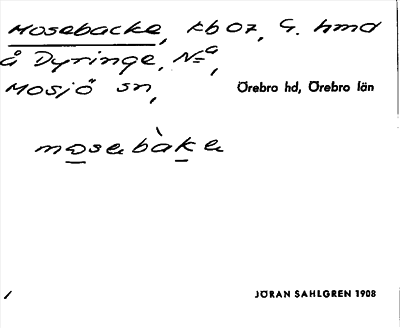 Mosebacke, kb 07, G. hmd
å Dyringe, Nᵃ,
Mosjö sn,
Örebro hd, Örebro län
mosabàka
JÖRAN SAHLGREN 1908